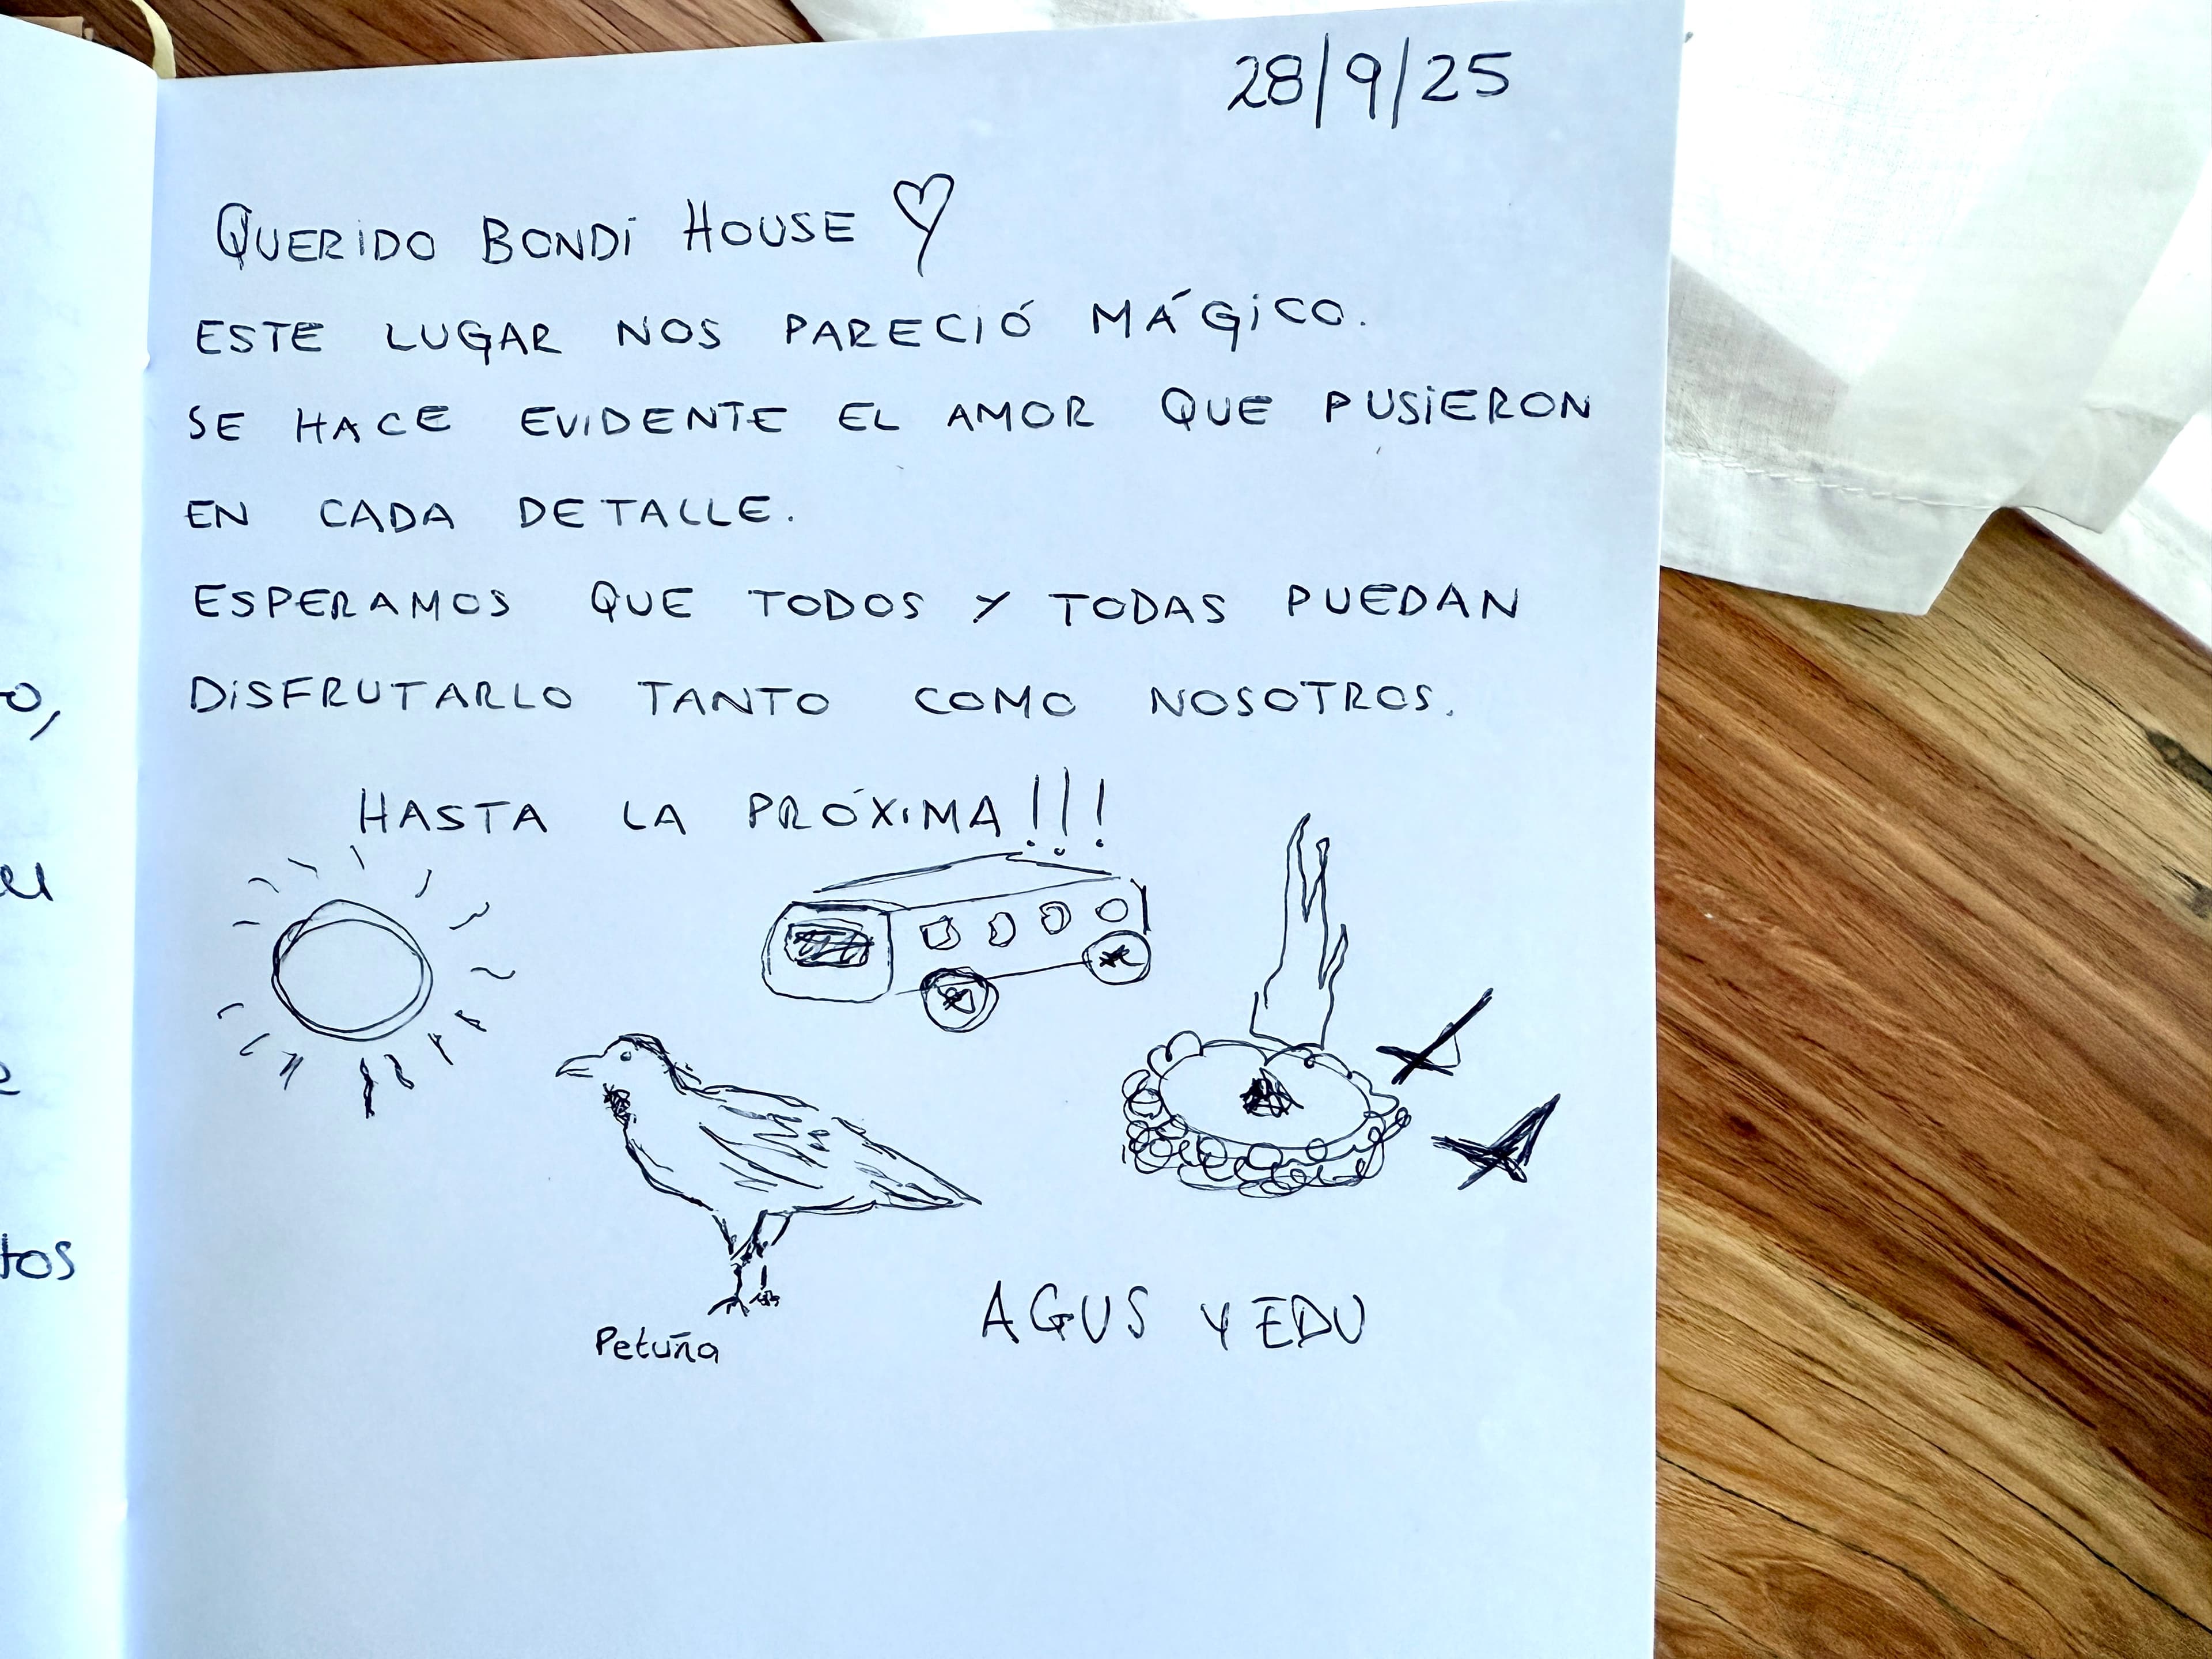 28/9/25
QUERIDO BONDI HOUSE ♡
ESTE LUGAR NOS PARECIÓ MÁGICO.
SE HACE EVIDENTE EL AMOR QUE PUSIERON
EN CADA DETALLE.
ESPERAMOS QUE TODOS Y TODAS PUEDAN
DISFRUTARLO TANTO COMO NOSOTROS.
HASTA LA PRÓXIMA!!!
Petuña
AGUS Y EDU
tos